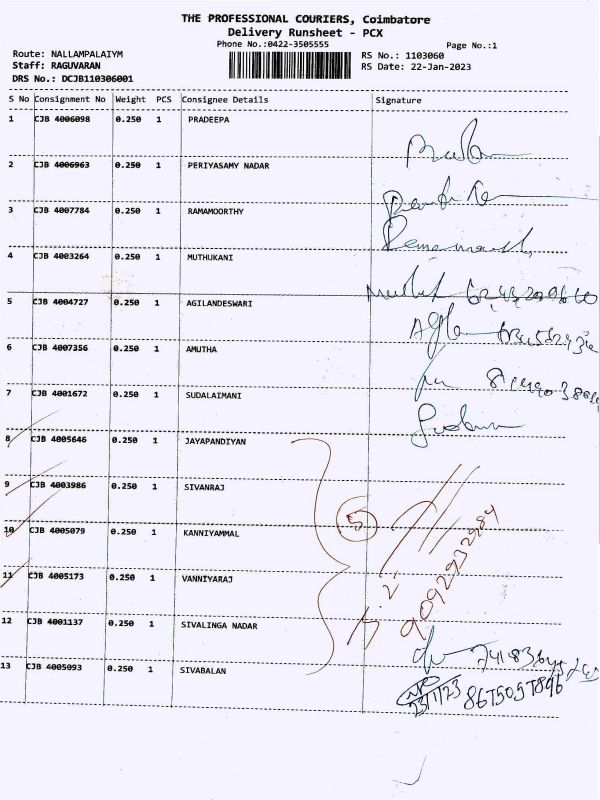 THE PROFESSIONAL COURIERS, Coimbatore
Delivery Runsheet - PCX
Phone No.:0422-3505555
Page No.:1
Route: NALLAMPALAIYM
RS No.: 1103060
Staff: RAGUVARAN
RS Date: 22-Jan-2023
DRS No.: DCJB110306001
S No Consignment No Weight PCS Consignee Details Signature
1 CJB 4006098 0.250 1 PRADEEPA
2 CJB 4006963 0.250 1 PERIYASAMY NADAR
3 CJB 4007784 0.250 1 RAMAMOORTHY
4 CJB 4003264 0.250 1 MUTHUKANI
5 CJB 4004727 0.250 1 AGILANDESWARI
6 CJB 4007356 0.250 1 AMUTHA
7 CJB 4001672 0.250 1 SUDALAIMANI
8 CJB 4005646 0.250 1 JAYAPANDIYAN
9 CJB 4003986 0.250 1 SIVANRAJ
5
10 CJB 4005079 0.250 1 KANNIYAMMAL
9092932984
11 CJB 4005173 0.250 1 VANNIYARAJ
12 CJB 4001137 0.250 1 SIVALINGA NADAR
13 CJB 4005093 0.250 1 SIVABALAN
23/1/23 8675057896